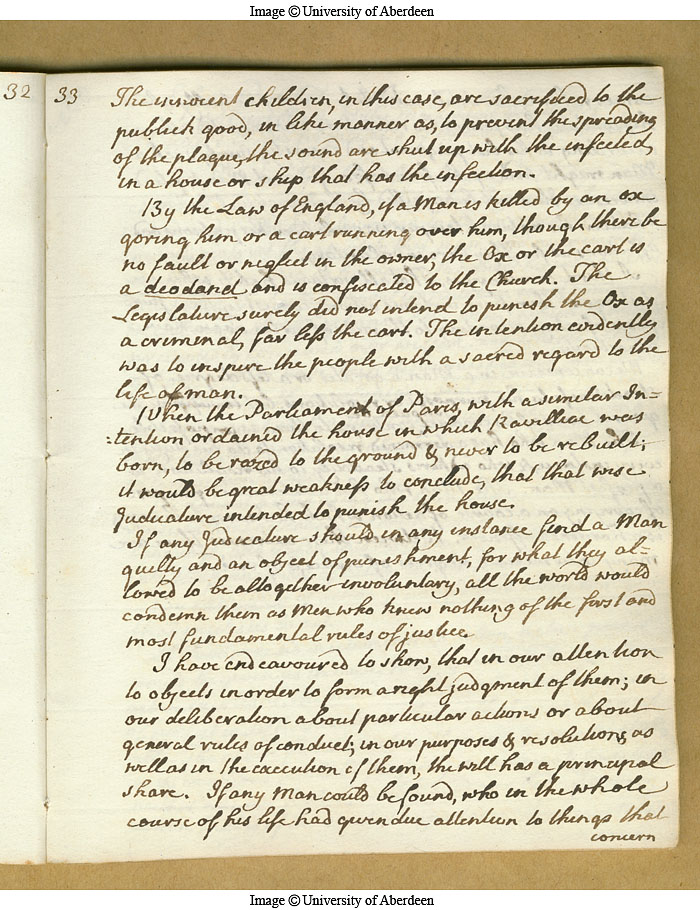 Image © University of Aberdeen
32
33
The innocent children, in this case, are sacrificed to the
publick good, in like manner as, to prevent the spreading
of the plague, the sound are shut up with the infected,
in a house or ship that has the infection.
By the Law of England, if a Man is killed by an ox
goring him or a cart running over him, though there be
no fault or neglect in the owner; the Ox or the cart is
a deodand and is confiscated to the Church. The
Legislature surely did not intend to punish the Ox as
a criminal, far less the cart. The intention evidently
was to inspire the people with a sacred regard to the
life of man.
When the Parliament of Paris, with a similar In=
=tention ordained the house in which Ravilliac was
born, to be razed to the ground & never to be rebuilt;
it would be great weakness to conclude, that that wise
Judicature intended to punish the house.
If any Judicature should in any instance find a Man
guilty and an object of punishment, for what they al=
lowed to be altogether involuntary, all the world would
condemn them as Men who knew nothing of the first and
most fundamental rules of justice.
I have endeavoured to show, that in our attention
to objects in order to form a right judgment of them; in
our deliberation about particular actions or about
general rules of conduct; in our purposes & resolutions, as
well as in the execution of them, the will has a principal
share. If any Man could be found, who in the whole
course of his life had given due attention to things that
concern
Image © University of Aberdeen